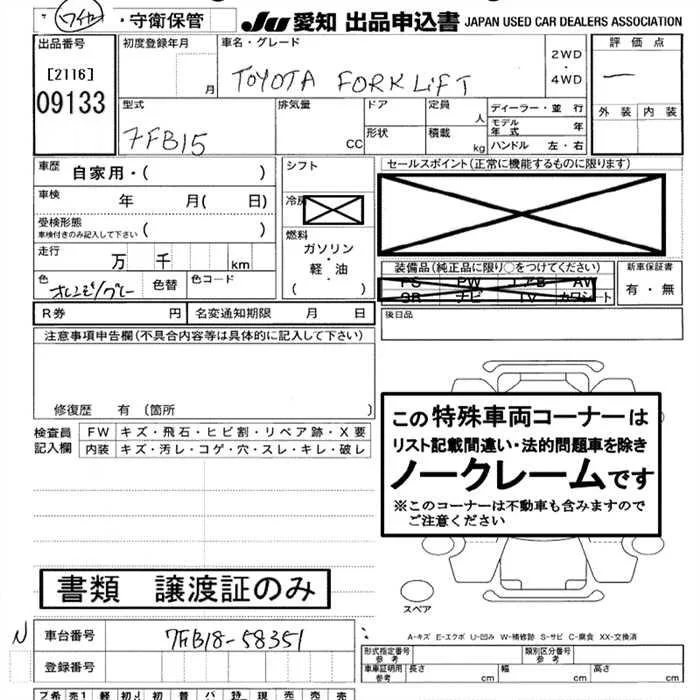 ワイセ・守衛保管 Ju 愛知 出品申込書 JAPAN USED CAR DEALERS ASSOCIATION
出品番号 初度登録年月 車名・グレード 評価点
[2116] 月 TOYOTA FORKLiFT 2WD・4WD 一
09133 型式 排気量 ドア 定員 ディーラー・並行 外装 内装
7FB15 CC 形状 人 積載 kg モデル年式 年
ハンドル 左・右
車歴 自家用・( ) シフト セールスポイント(正常に機能するものに限ります)
車検 年 月( 日) 冷房
受検形態 ( ) 燃料
車検付きのみ記入して下さい
走行 万 千 km ガソリン・軽・油
色 オレンジ/グレー 色替 色コード ( )
装備品(純正品に限り○をつけてください) 新車保証書
PS PW エアB AW 有・無
SR ナビ TV カワシート
R券 円 名変通知期限 月 日 後日品
注意事項申告欄(不具合内容等は具体的に記入して下さい)
修復歴 有 (箇所 )
検査員記入欄 FW キズ・飛石・ヒビ割・リペア跡・X要
内装 キズ・汚レ・コゲ・穴・スレ・キレ・破レ
この特殊車両コーナーは
リスト記載間違い・法的問題車を除き
ノークレームです
※このコーナーは不動車も含みますので
ご注意ください
書類 譲渡証のみ
スペア
N 車台番号 7FB18-58351
A-キズ E-エクボ U-凹み W-補修跡 S-サビ C-腐食 XX-交換済
登録番号
形式指定番号 参考 類別区分番号 参考
車庫証明用 参考 長さ cm 幅 cm 高さ cm